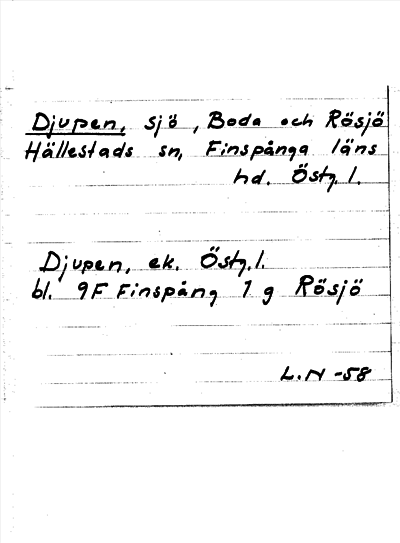 Djupen, sjö, Boda och Rösjö
Hällestads sn, Finspånga läns
hd. Östg. l.
Djupen, ek. Östg. l.
bl. 9F Finspång 1 g Rösjö
L.N -58